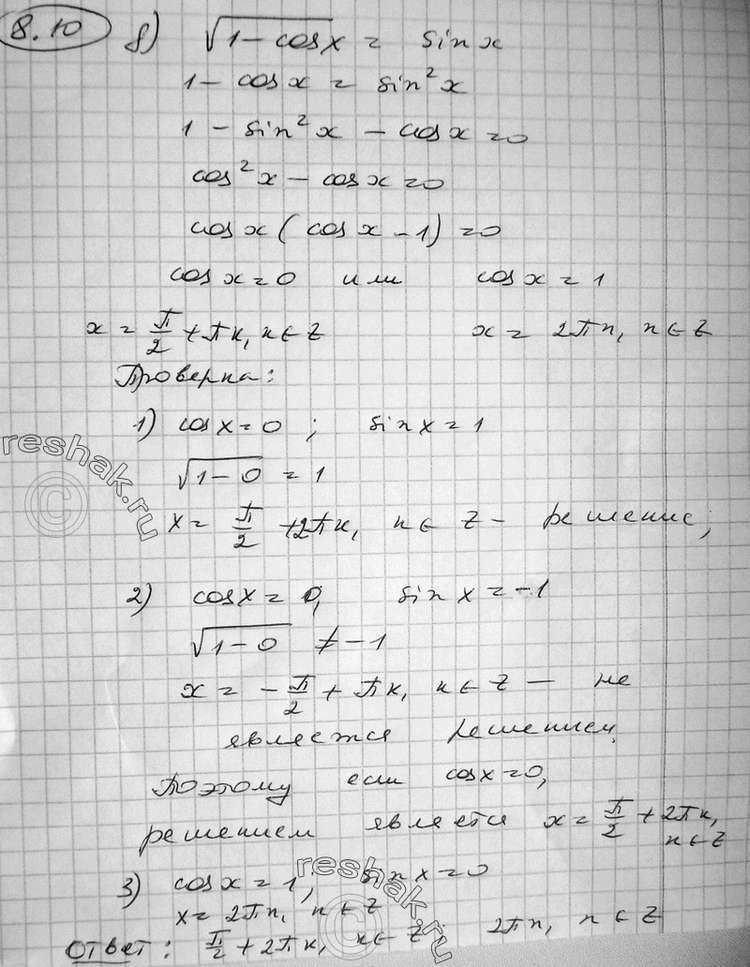 8.10 б) √(1-cosx) = sinx
1 - cosx = sin²x
1 - sin²x - cosx = 0
cos²x - cosx = 0
cosx( cosx - 1) = 0
cosx = 0 или cosx = 1
x = π/2 + πk, k ∈ Z x = 2πn, n ∈ Z
Проверка:
1) cosx = 0 ; sinx = 1
√(1-0) = 1
x = π/2 + 2πk, k ∈ Z - решение;
2) cosx = 0, sinx = -1
√(1-0) ≠ -1
x = -π/2 + πk, k ∈ Z - не
является решением.
Поэтому если cosx = 0,
решением является x = π/2 + 2πk,
k ∈ Z
3) cosx = 1, sinx = 0
x = 2πn, n ∈ Z
Ответ: π/2 + 2πk, k ∈ Z; 2πn, n ∈ Z
reshak.ru
©
reshak.ru
©